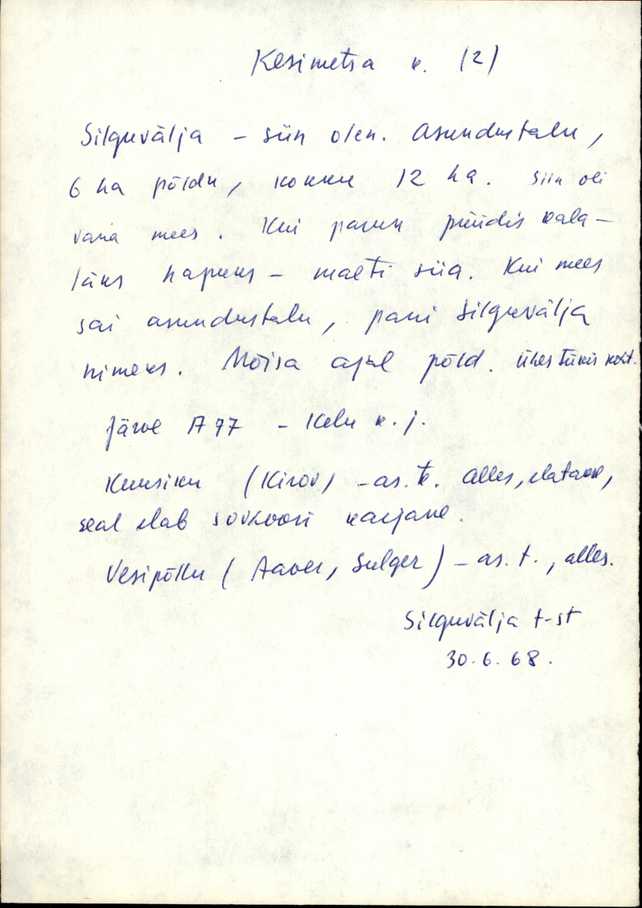 Kesimetsa k. (2)
Silguvälja – siin olen. Asundustalu,
6 ha põldu, kokku 12 ha. Siin oli
vana mees. Kui parun püüdis kala –
läks hapuks – maeti siia. Kui mees
sai asundustalu, pani Silguvälja
nimeks. Mõisa ajal põld. Ühes tükis
Järve A 97 – Kelu k. j.
Kuusiku (Kirov) – as. t. alles, elatakse,
seal elab sovhoosi karjane.
Vesipõllu (Aaver, Sulger) – as. t., alles.
Silguvälja t-st
30.6.68.